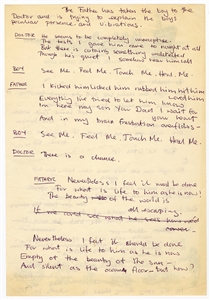 The Father has taken the boy to the
Doctor and is trying to explain the boys
peculiar and vibrations.
DOCTOR He seems to be completely unreceptive.
The tests I gave him came to nought at all
But there is outwards something
Though his quiet I needed hear him call
BOY See Me. Feel Me. Touch Me. Heal Me.
FATHER I kicked him licked him rubbed him hurt him
loved him
Everything I've tried to let him know
I'm here my son You Dad I want to
And in my brave frustration overflows -
BOY See Me. Feel Me. Touch Me. Heal Me.
DOCTOR There is a chance.
FATHER Nevertheless I feel it must be done
For what is life to him as he is now?
The beauty of the world is
all escaping.
If we could see what he sees
Nevertheless I feel it should be done
For what is life to him as he is now
Empty of the beauty of the sun -
And silent as the ocean floor but how?